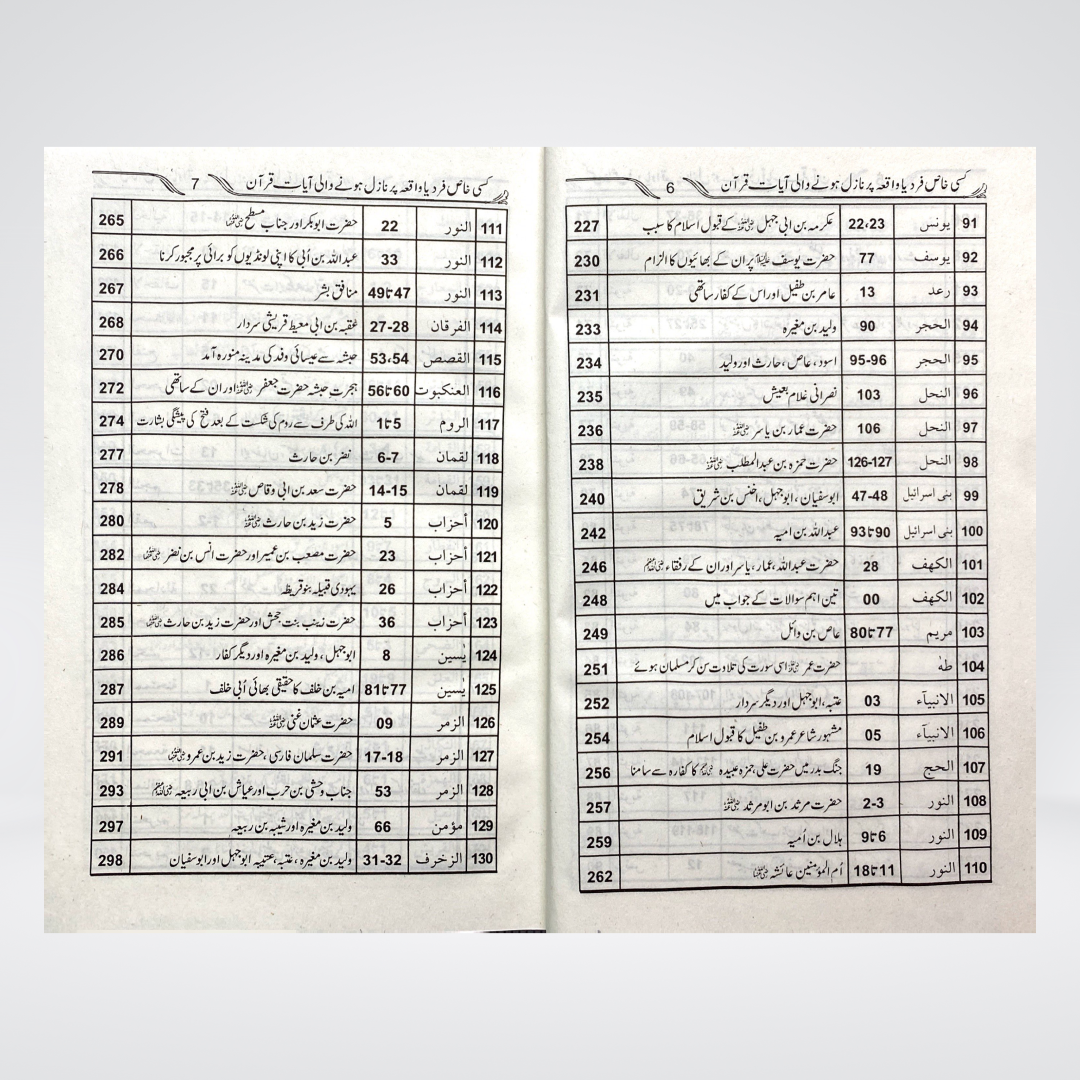 کسی خاص فرد یا واقعہ پر نازل ہونے والی آیات قرآن 6
91 یونس 22،23 عکرمہ بن ابی جہل رضی اللہ عنہ کے قبول اسلام کا سبب 227
92 یوسف 77 حضرت یوسف علیہ السلام پر ان کے بھائیوں کا الزام 230
93 رعد 13 عامر بن طفیل اور اس کے کفار ساتھی 231
94 الحجر 90 ولید بن مغیرہ 233
95 الحجر 95-96 اسود، عاص، حارث اور ولید 234
96 النحل 103 نصرانی غلام بعیش 235
97 النحل 106 حضرت عمار بن یاسر رضی اللہ عنہ 236
98 النحل 126-127 حضرت حمزہ بن عبدالمطلب رضی اللہ عنہ 238
99 بنی اسرائیل 47-48 ابوسفیان، ابوجہل، اخنس بن شریق 240
100 بنی اسرائیل 90تا93 عبداللہ بن امیہ 242
101 الکهف 28 حضرت عبداللہ، عمار، یاسر اور ان کے رفقاء رضی اللہ عنہم 246
102 الکهف 00 تین اہم سوالات کے جواب میں 248
103 مریم 77تا80 عاص بن وائل 249
104 طٰهٰ حضرت عمر رضی اللہ عنہ اسی سورت کی تلاوت سن کر مسلمان ہوئے 251
105 الانبیآء 03 عتبہ، ابوجہل اور دیگر سردار 252
106 الانبیآء 05 مشہور شاعر عمرو بن طفیل کا قبول اسلام 254
107 الحج 19 جنگ بدر میں حضرت علی، حمزہ عبیدہ رضی اللہ عنہم کا کفارہ سے سامنا 256
108 النور 2-3 حضرت مرثد بن ابومرثد رضی اللہ عنہ 257
109 النور 6تا9 ہلال بن اُمیہ 259
110 النور 11تا18 اُم المؤمنین عائشہ رضی اللہ عنہا 262
کسی خاص فرد یا واقعہ پر نازل ہونے والی آیات قرآن 7
111 النور 22 حضرت ابوبکر اور جناب مسطح رضی اللہ عنہما 265
112 النور 33 عبداللہ بن اُبی کا اپنی لونڈیوں کو برائی پر مجبور کرنا 266
113 النور 47تا49 منافق بشر 267
114 الفرقان 27-28 عقبہ بن ابی معیط قریشی سردار 268
115 القصص 53،54 حبشہ سے عیسائی وفد کی مدینہ منورہ آمد 270
116 العنکبوت 56تا60 ہجرت حبشہ حضرت جعفر رضی اللہ عنہ اور ان کے ساتھی 272
117 الروم 1تا5 اللہ کی طرف سے روم کی شکست کے بعد فتح کی پیشگی بشارت 274
118 لقمان 6-7 نضر بن حارث 277
119 لقمان 14-15 حضرت سعد بن ابی وقاص رضی اللہ عنہ 278
120 أحزاب 5 حضرت زید بن حارث رضی اللہ عنہ 280
121 أحزاب 23 حضرت مصعب بن عمیر اور حضرت انس بن نضر رضی اللہ عنہما 282
122 أحزاب 26 یہودی قبیلہ بنو قریظہ 284
123 أحزاب 36 حضرت زینب بنت جحش اور حضرت زید بن حارث رضی اللہ عنہما 285
124 یٰسین 8 ابوجہل، ولید بن مغیرہ اور دیگر کفار 286
125 یٰسین 77تا81 امیہ بن خلف کا حقیقی بھائی اُبی خلف 287
126 الزمر 09 حضرت عثمان غنی رضی اللہ عنہ 289
127 الزمر 17-18 حضرت سلمان فارسی، حضرت زید بن عمرو رضی اللہ عنہما 291
128 الزمر 53 جناب وحشی بن حرب اور عیاش بن ابی ربیعہ رضی اللہ عنہم 293
129 مؤمن 66 ولید بن مغیرہ اور شیبہ بن ربیعہ 297
130 الزخرف 31-32 ولید بن مغیرہ، عتبہ، عتیبہ ابوجہل اور ابوسفیان 298